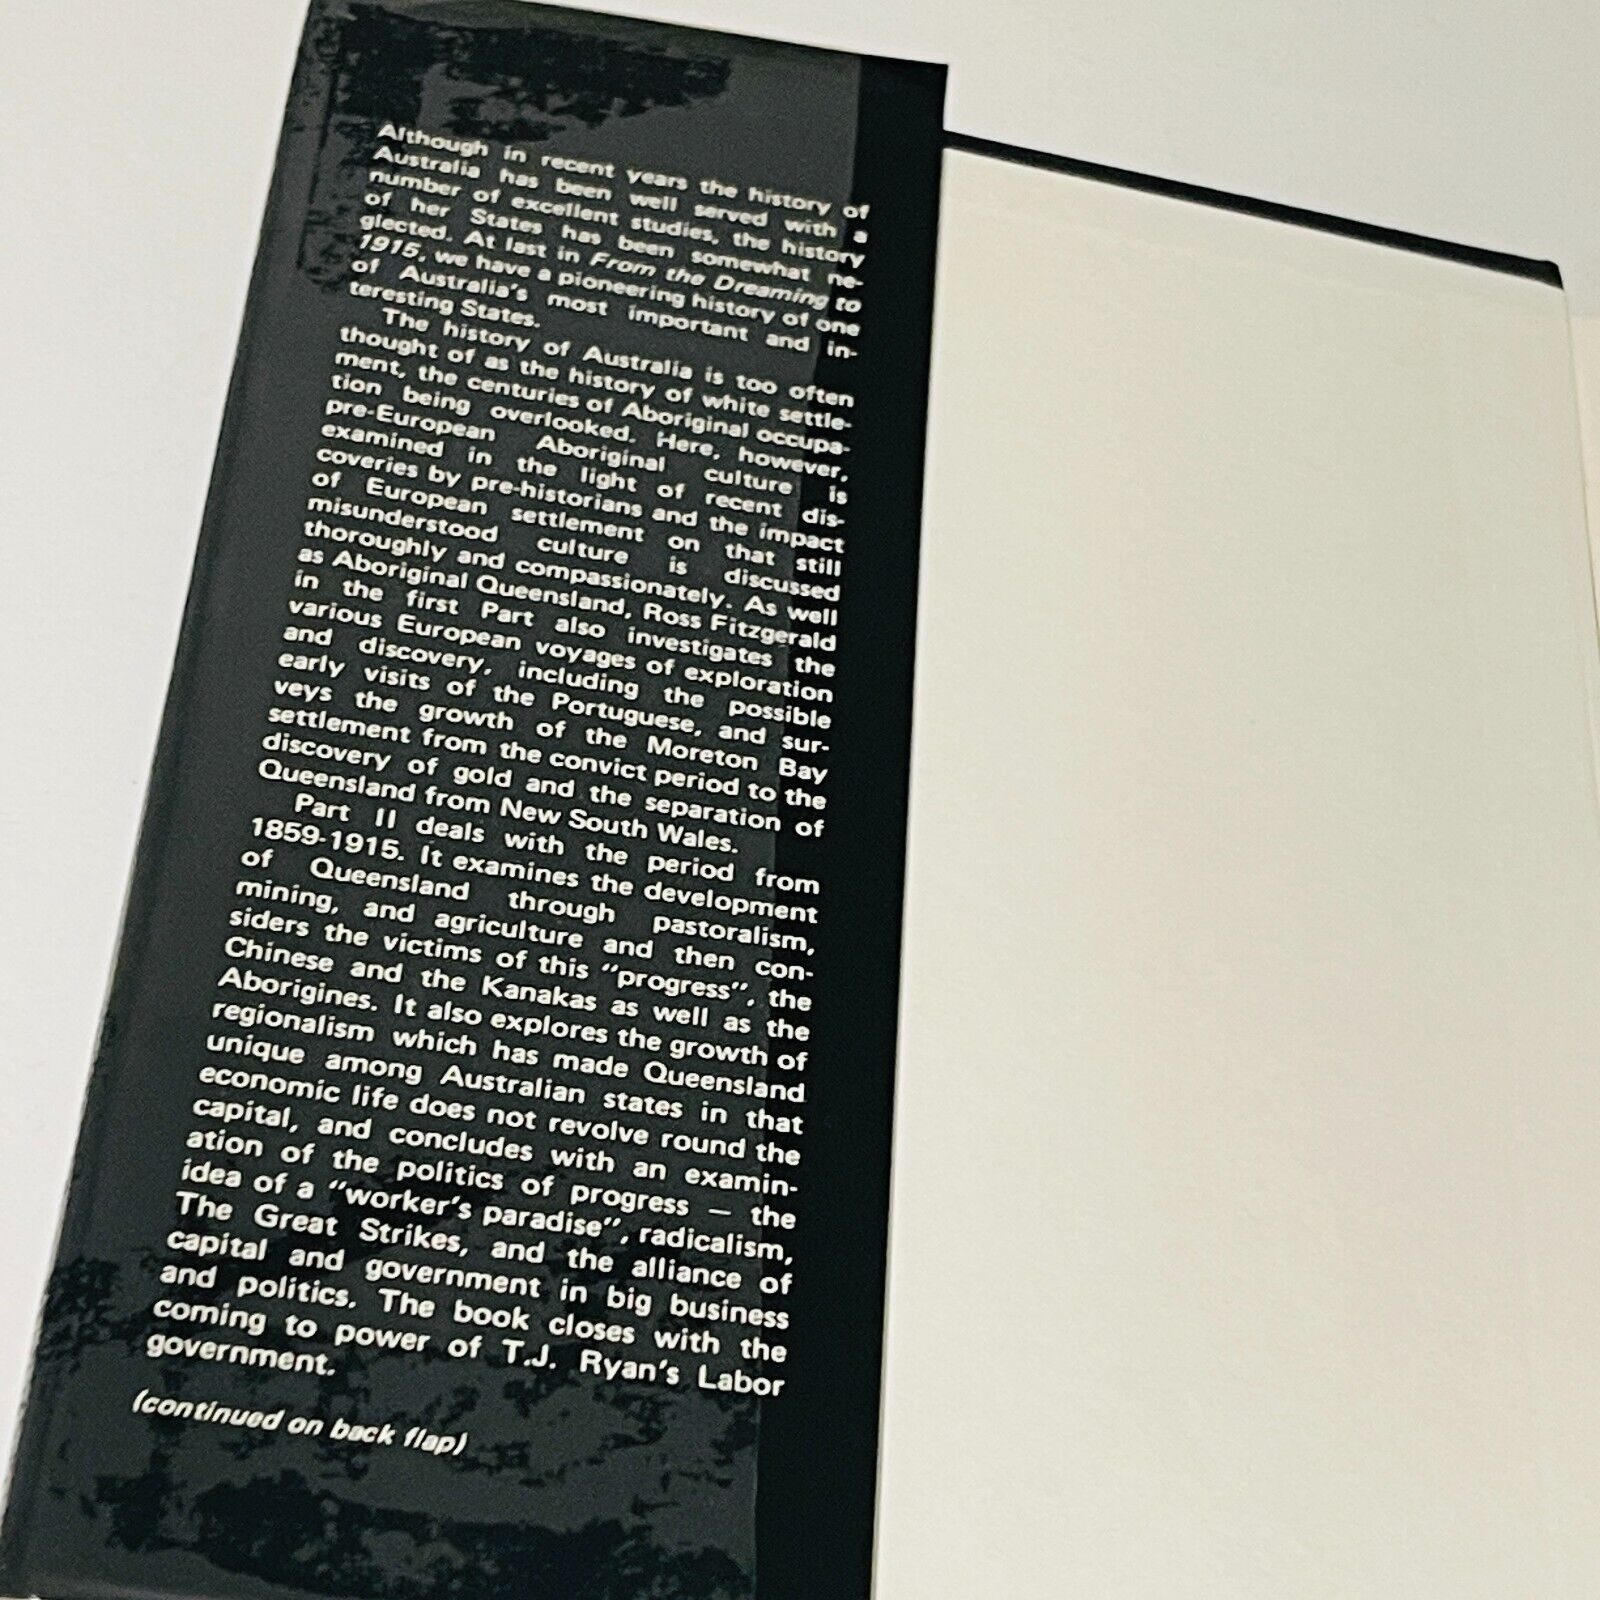 Although in recent years the history of
Australia has been well served with a
number of excellent studies, the history
of her States has been somewhat ne-
glected. At last in From the Dreaming to
1915, we have a pioneering history of one
of Australia's most important and in-
teresting States.
The history of Australia is too often
thought of as the history of white settle-
ment, the centuries of Aboriginal occupa-
tion being overlooked. Here, however,
pre-European Aboriginal culture is
examined in the light of recent dis-
coveries by pre-historians and the impact
of European settlement on that still
misunderstood culture is discussed
thoroughly and compassionately. As well
as Aboriginal Queensland, Ross Fitzgerald
in the first Part also investigates the
various European voyages of exploration
and discovery, including the possible
early visits of the Portuguese, and sur-
veys the growth of the Moreton Bay
settlement from the convict period to the
discovery of gold and the separation of
Queensland from New South Wales.
Part II deals with the period from
1859-1915. It examines the development
of Queensland through pastoralism,
mining, and agriculture and then con-
siders the victims of this "progress", the
Chinese and the Kanakas as well as the
Aborigines. It also explores the growth of
regionalism which has made Queensland
unique among Australian states in that
economic life does not revolve round the
capital, and concludes with an examin-
ation of the politics of progress — the
idea of a "worker's paradise", radicalism,
The Great Strikes, and the alliance of
capital and government in big business
and politics. The book closes with the
coming to power of T.J. Ryan's Labor
government.
(continued on back flap)